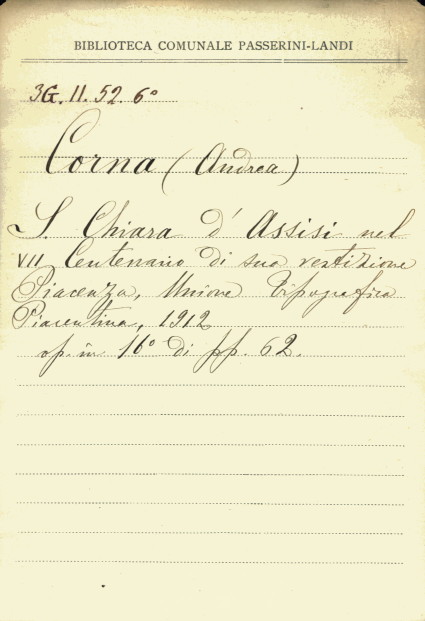 BIBLIOTECA COMUNALE PASSERINI-LANDI
3G. II. 52. 6°
Corna (Andrea)
S. Chiara d'Assisi nel
VII Centenario di sua vestizione
Piacenza, Unione Tipografica
Piacentina, 1912
op. in 16° di pp. 62.